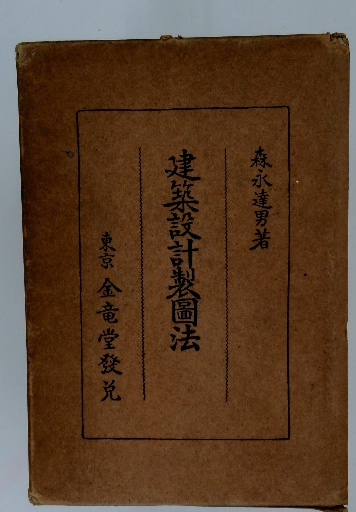 森永達男著
建築設計製圖法
東京 金竜堂發兌